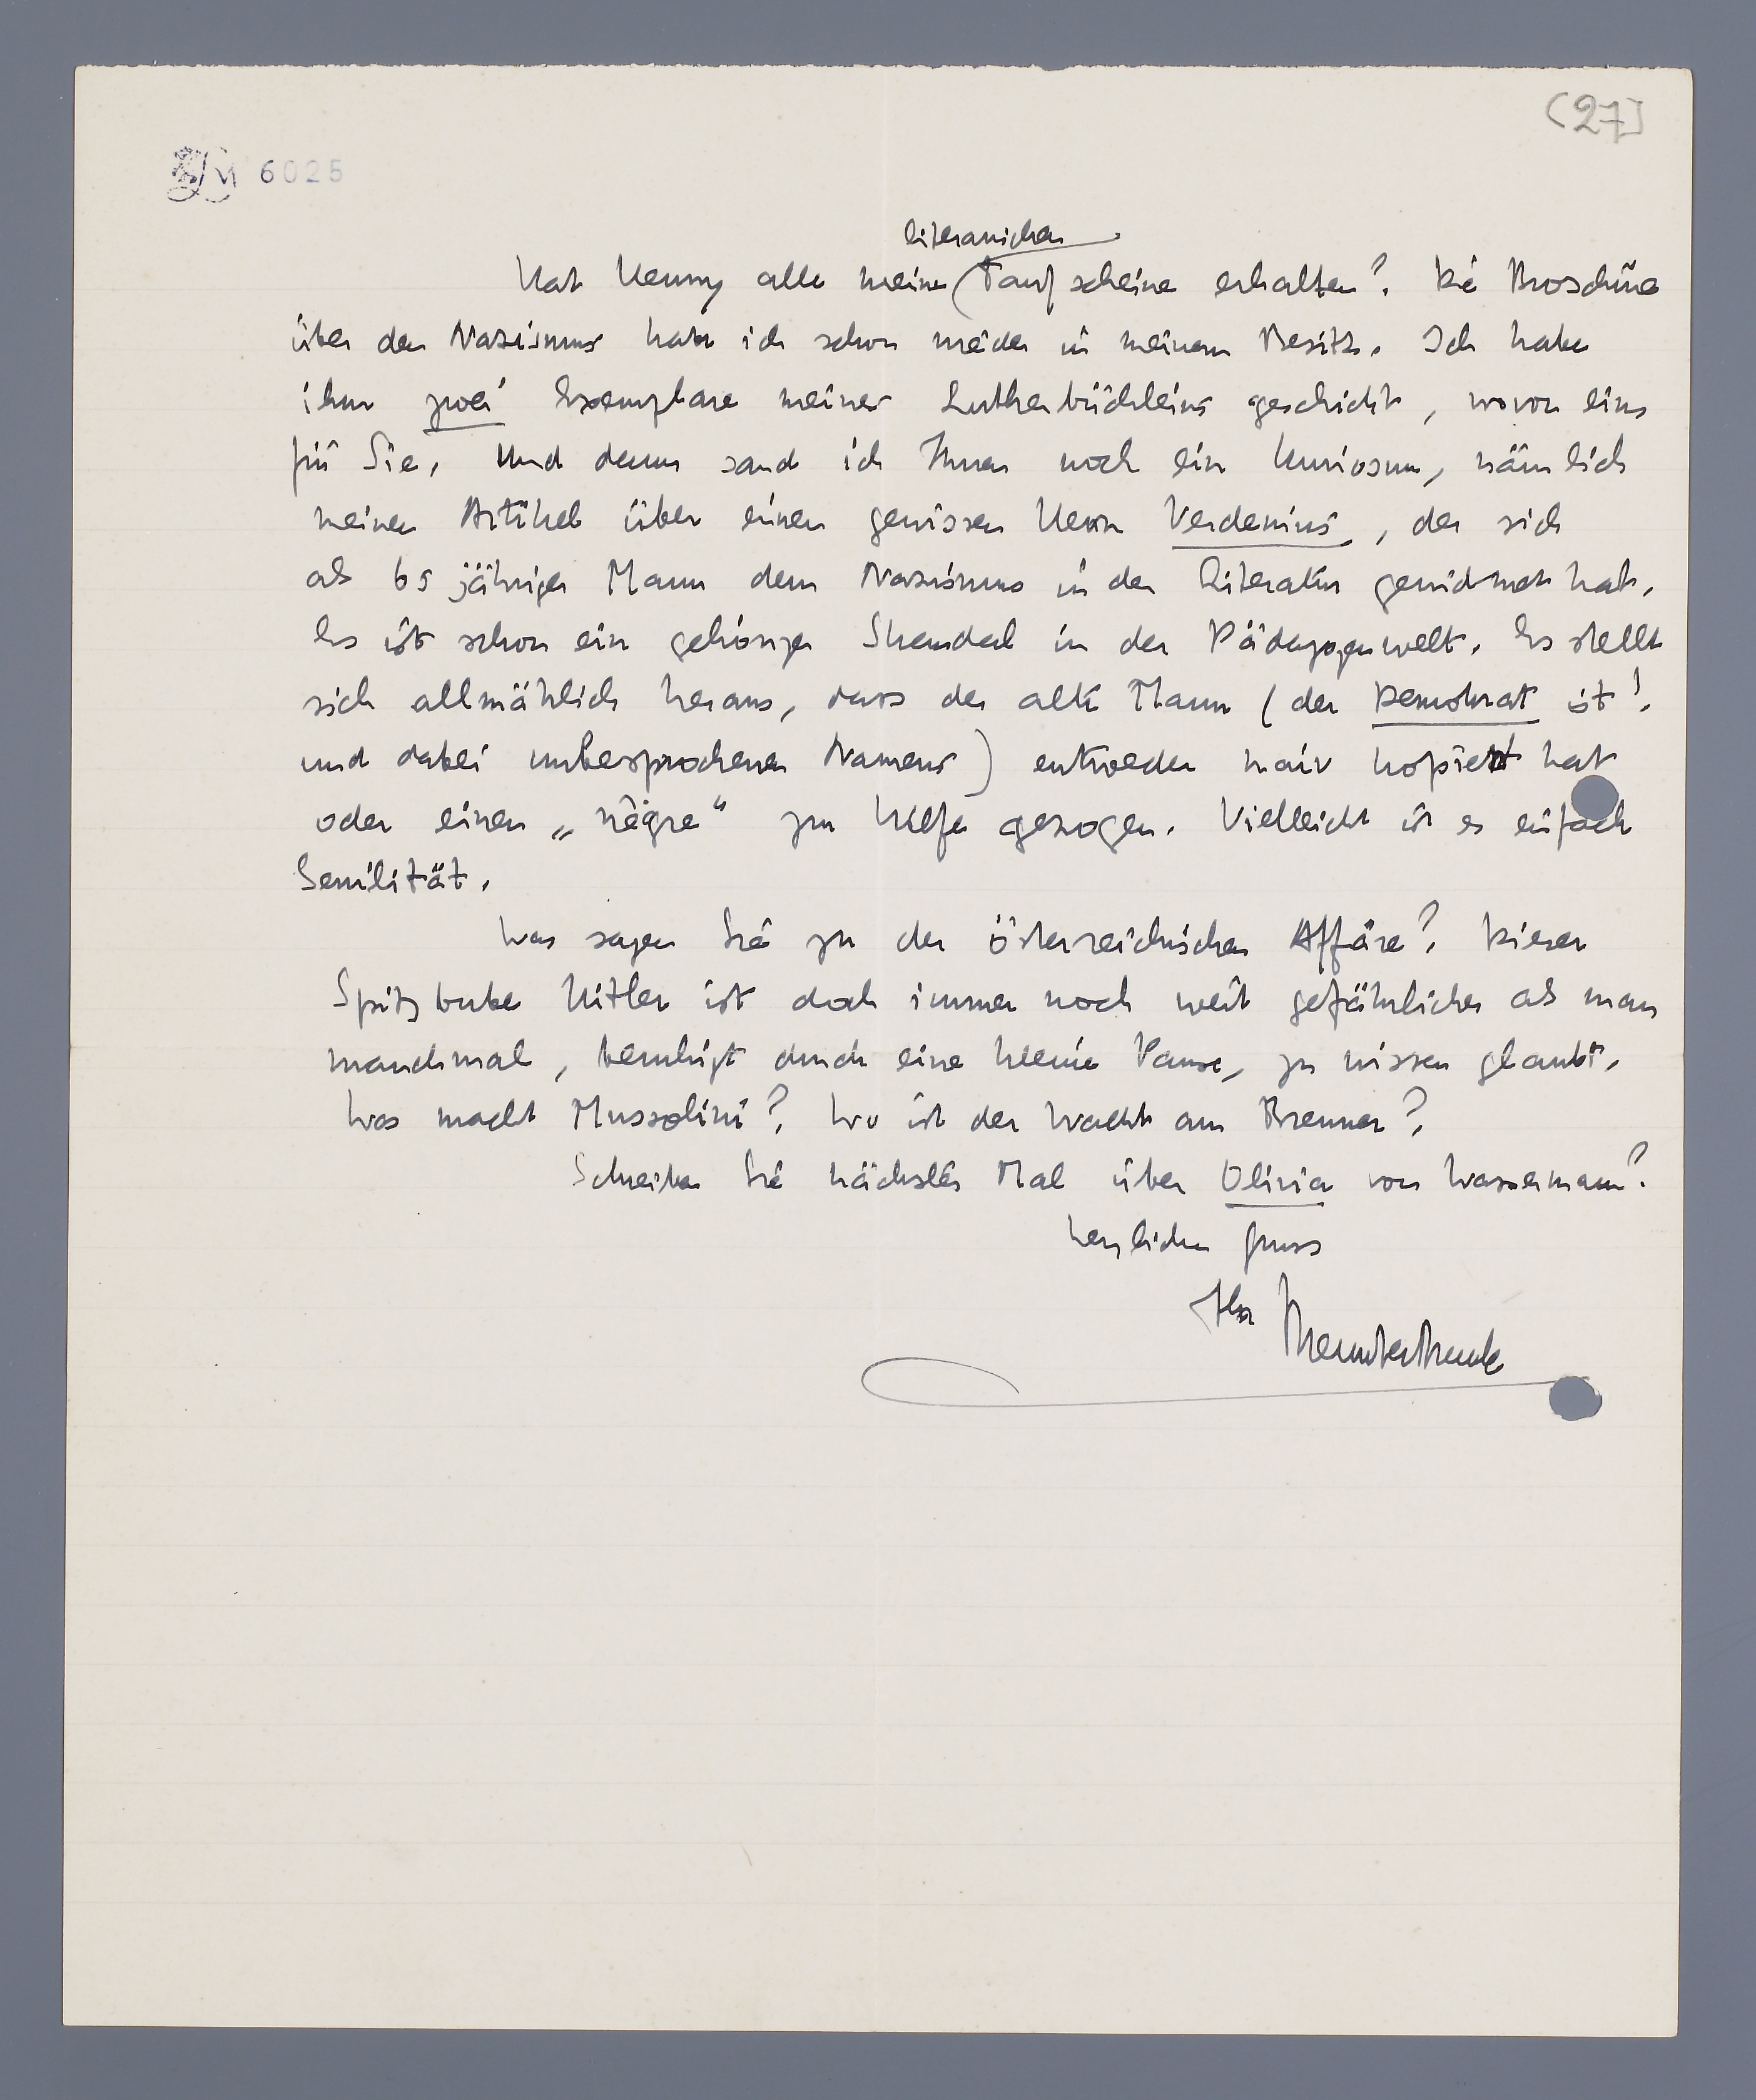 (27)
6025
literarischen
Hat Henny alle meine Taufscheine erhalten? Die Broschüre
über den Nazismus habe ich schon wieder in meinem Besitz. Ich habe
ihm zwei Exemplare meines Lutherbüchleins geschickt, wovon eins
für Sie. Und dann sand ich Ihnen noch ein Kuriosum, nämlich
meinen Artikel über einen gewissen Herrn Verdenius, der sich
als 65 jähriger Mann dem Nazismus in der Literatur gewidmet hat.
Es ist schon ein gehöriger Skandal in der Pädagogenwelt. Es stellt
sich allmählich heraus, dass der alte Mann (der Demokrat ist!
und dabei unbesprochenen Namens) entweder naiv kopiert hat
oder einen „nègre" zu Hilfe gezogen. Vielleicht ist es einfach
Senilität.
Was sagen Sie zu der österreichischen Affäre? Dieser
Spitzbube Hitler ist doch immer noch weit gefährlicher als man
manchmal, beruhigt durch eine kleine Pause, zu wissen glaubt.
Was macht Mussolini? Wo ist der Wacht am Brenner?
Schreiben Sie nächstes Mal über Olivia von Wassermann?
Herzlichen Gruss
Ihr Menno ter Braak